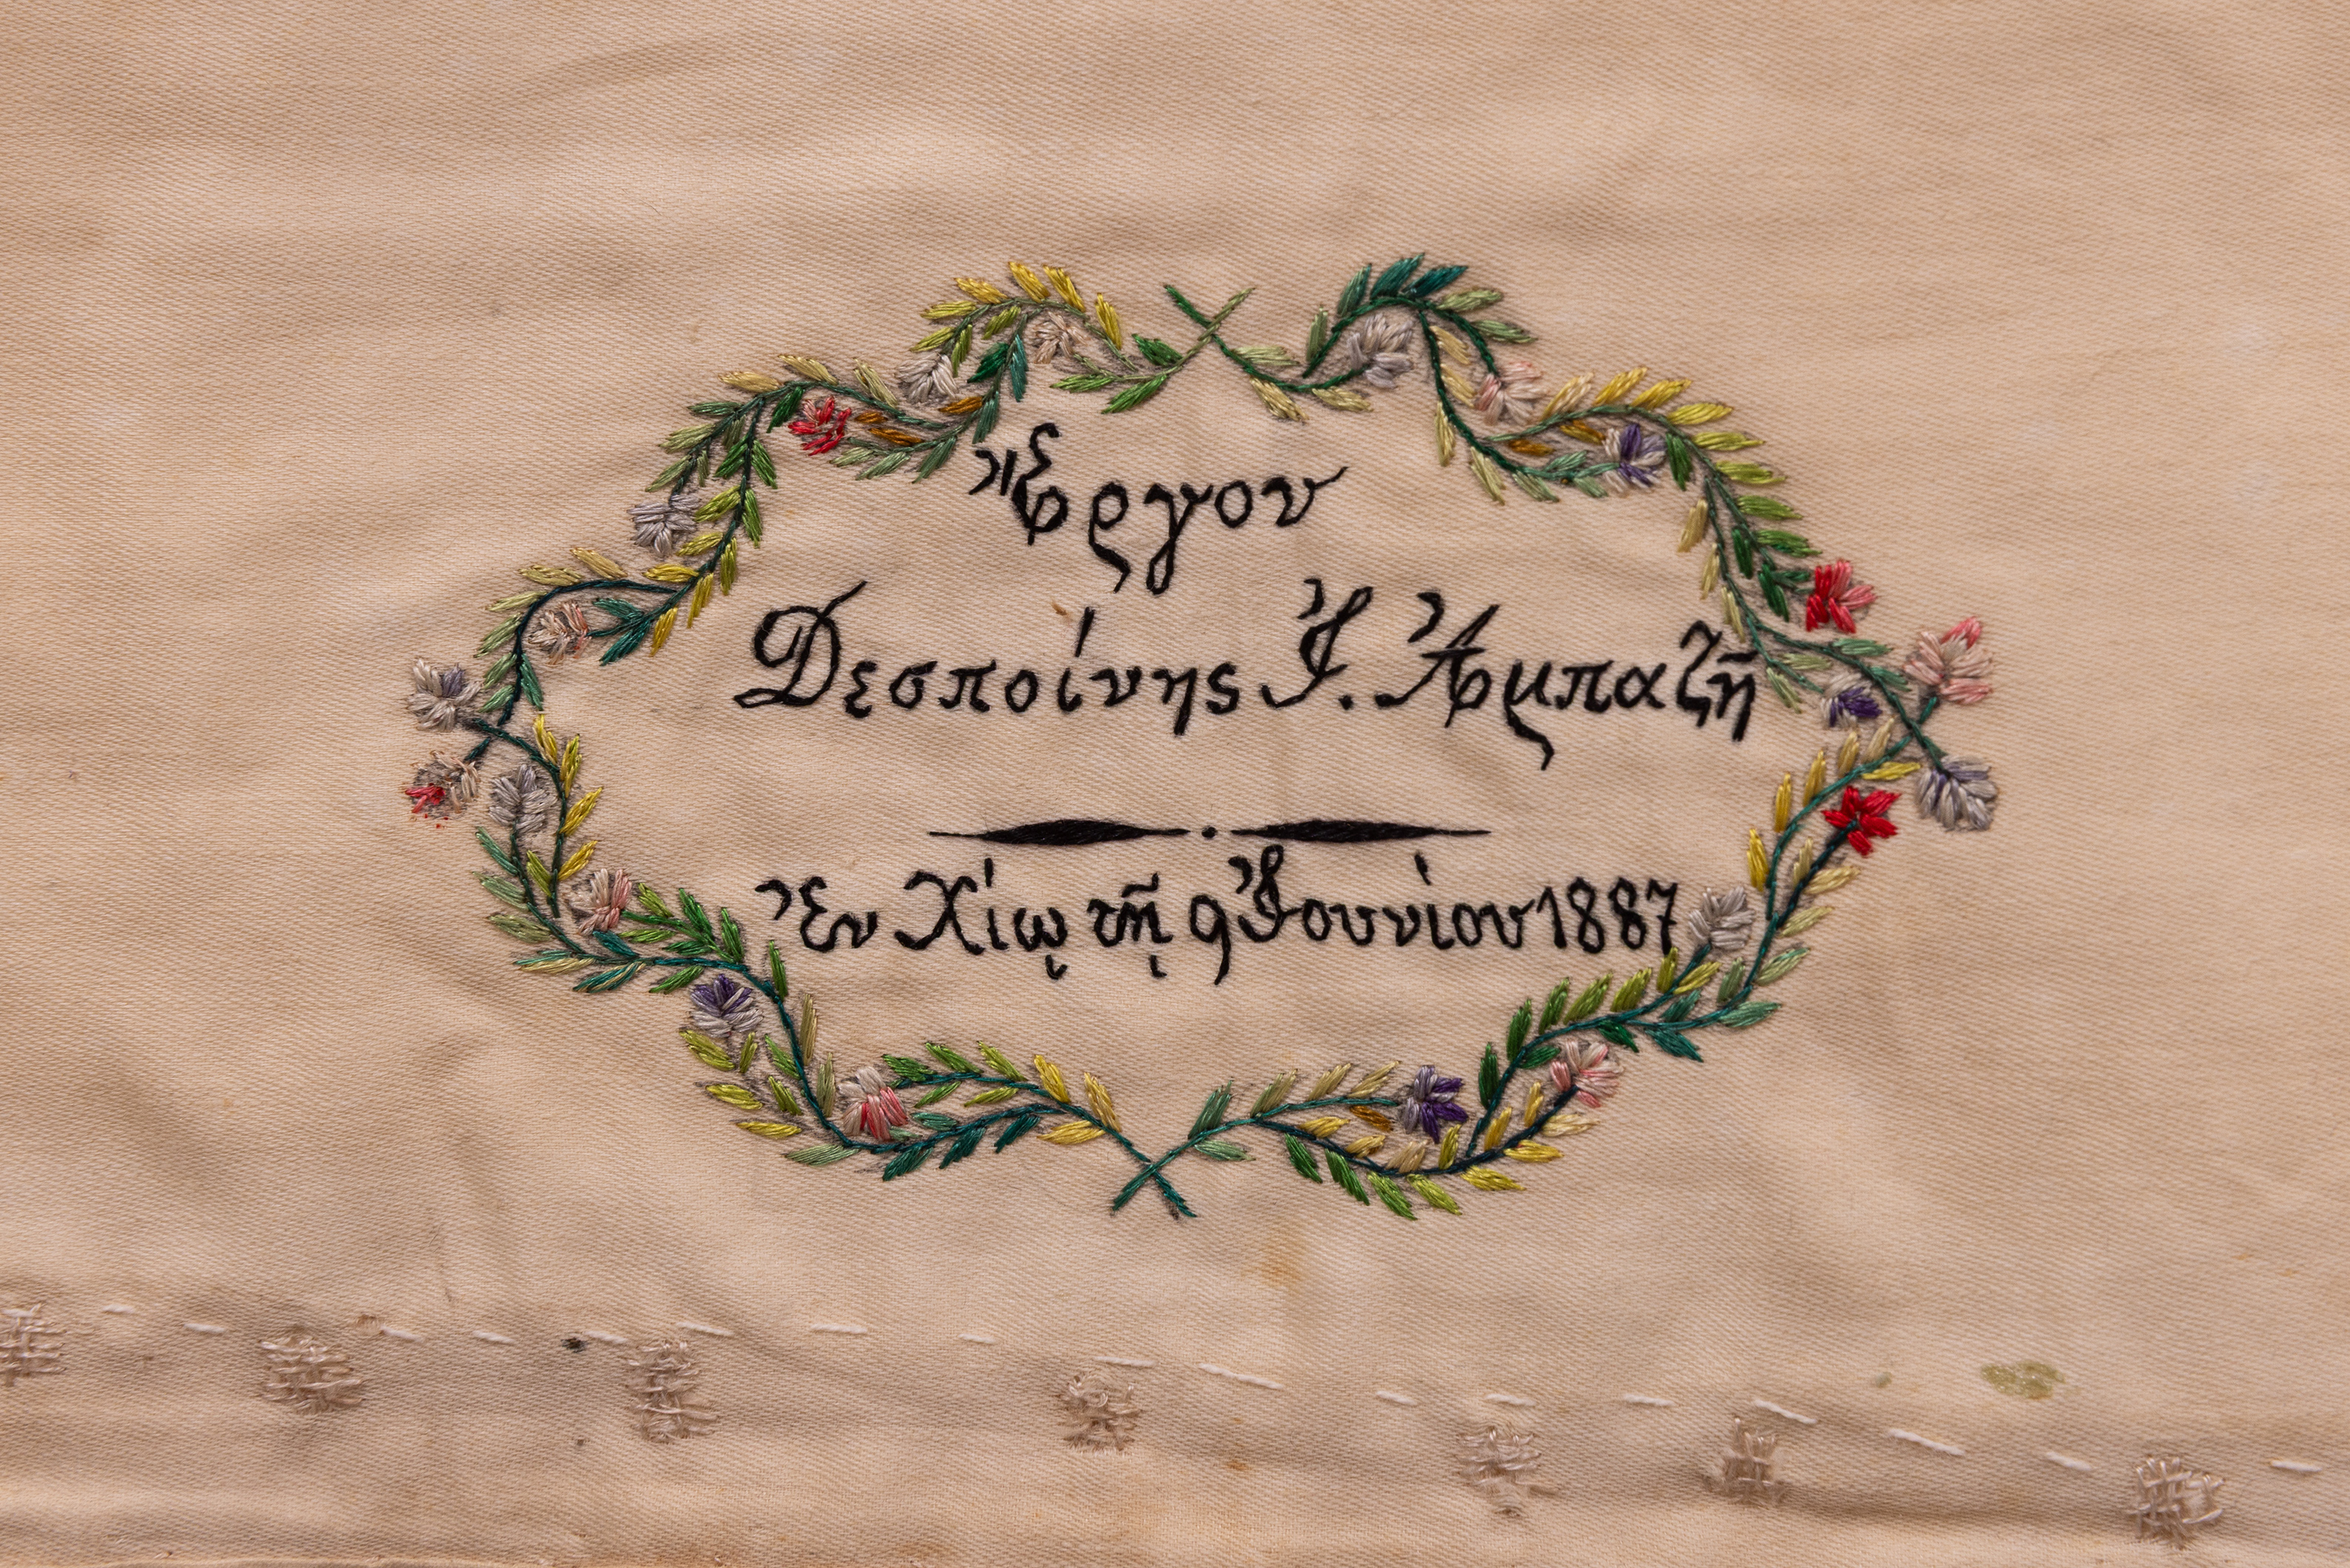 Ἔργον
Δεσποίνης Ἰ. Ἀμπαζῆ
Ἐν Χίῳ τῇ 9 Ἰουνίου 1887